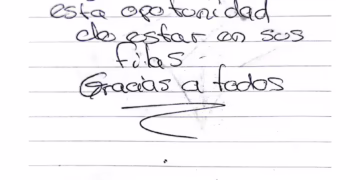 esta opotunidad
de estar en sus
filas
Gracias a todos